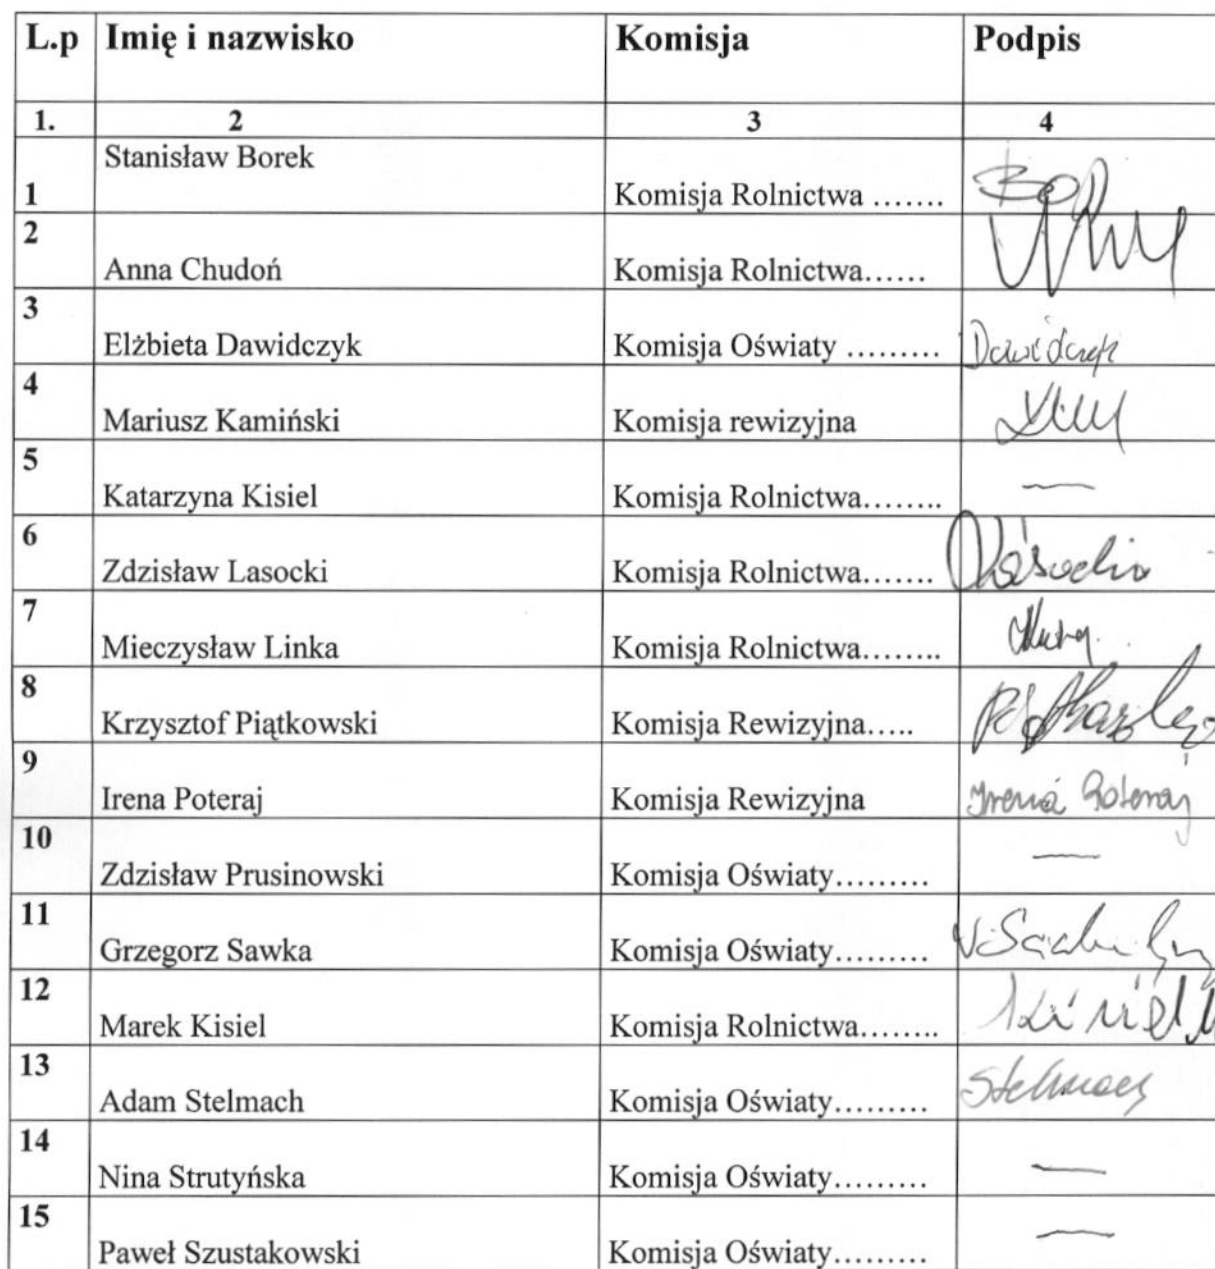 L.p Imię i nazwisko Komisja Podpis
1. 2 3 4
Stanisław Borek
1 Komisja Rolnictwa …….
2
Anna Chudoń Komisja Rolnictwa……
3
Elżbieta Dawidczyk Komisja Oświaty ……… Dawidczyk
4
Mariusz Kamiński Komisja rewizyjna
5
Katarzyna Kisiel Komisja Rolnictwa…….. —
6
Zdzisław Lasocki Komisja Rolnictwa…….
7
Mieczysław Linka Komisja Rolnictwa……..
8
Krzysztof Piątkowski Komisja Rewizyjna…..
9
Irena Poteraj Komisja Rewizyjna Irena Poteraj
10
Zdzisław Prusinowski Komisja Oświaty……… —
11
Grzegorz Sawka Komisja Oświaty………
12
Marek Kisiel Komisja Rolnictwa……..
13
Adam Stelmach Komisja Oświaty……… Stelmach
14
Nina Strutyńska Komisja Oświaty……… —
15
Paweł Szustakowski Komisja Oświaty……… —